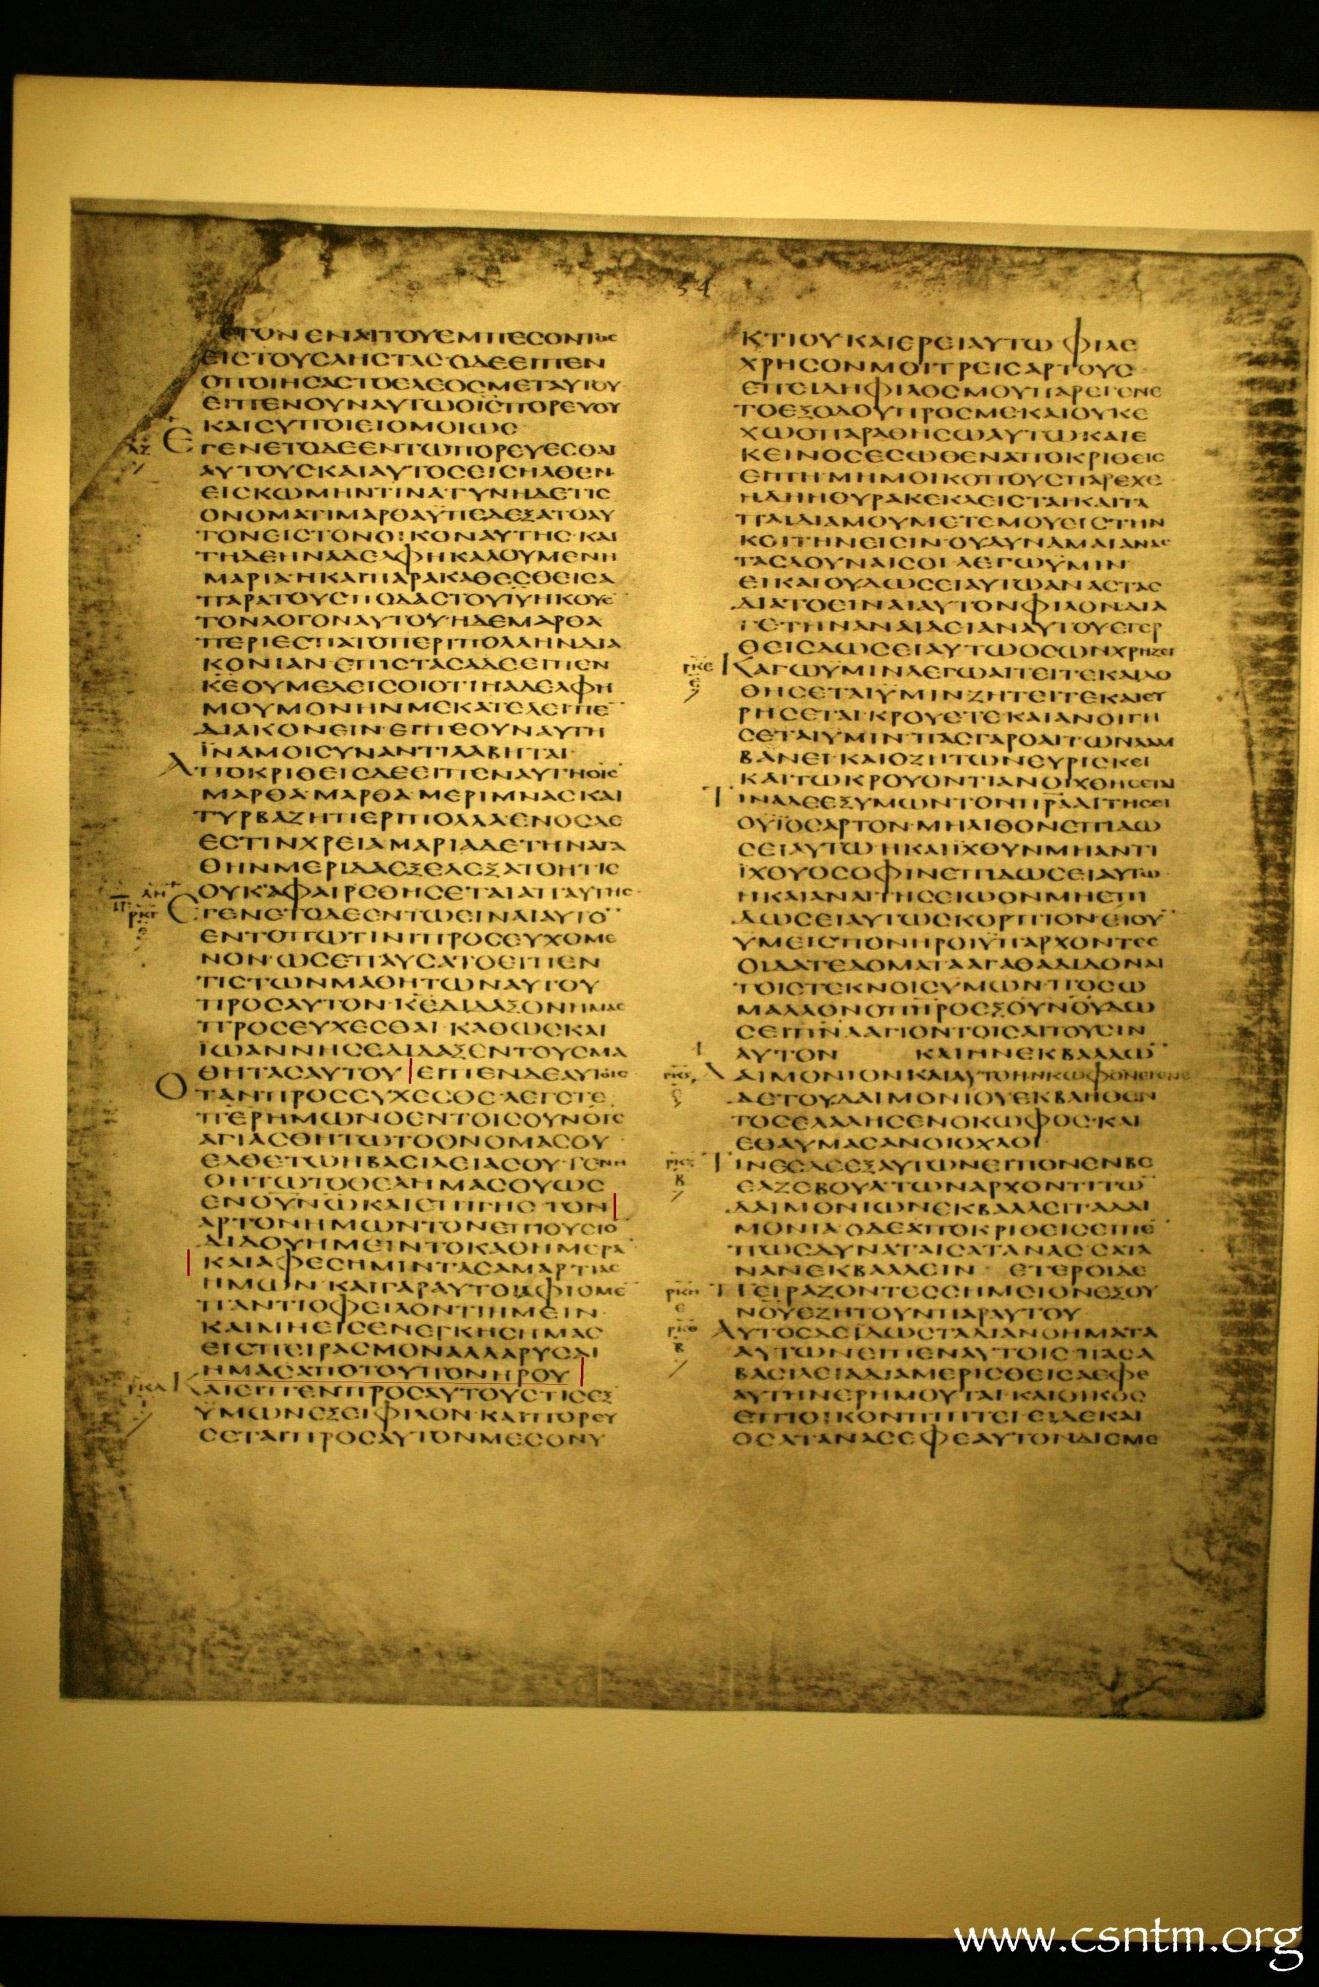 54
ΓΕΓΟΝΕΝΑΙΤΟΥΕΜΠΕϹΟΝΤΟϹ
ΕΙϹΤΟΥϹΛΗϹΤΑϹ·ΟΔΕΕΙΠΕΝ
ΟΠΟΙΗϹΑϹΤΟΕΛΕΟϹΜΕΤΑΥΤΟΥ
ΕΙΠΕΝΟΥΝΑΥΤΩΟΙϹΠΟΡΕΥΟΥ
ΚΑΙϹΥΠΟΙΕΙΟΜΟΙΩϹ
ΕΓΕΝΕΤΟΔΕΕΝΤΩΠΟΡΕΥΕϹΘΑΙ
ΑΥΤΟΥϹΚΑΙΑΥΤΟϹΕΙϹΗΛΘΕΝ
ΕΙϹΚΩΜΗΝΤΙΝΑΓΥΝΗΔΕΤΙϹ
ΟΝΟΜΑΤΙΜΑΡΘΑΫΠΕΔΕΞΑΤΟΑΥ
ΤΟΝΕΙϹΤΟΝΟΙΚΟΝΑΥΤΗϹ·ΚΑΙ
ΤΗΔΕΗΝΑΔΕΛΦΗΚΑΛΟΥΜΕΝΗ
ΜΑΡΙΑ·ΗΚΑΙΠΑΡΑΚΑΘΕϹΘΕΙϹΑ
ΠΑΡΑΤΟΥϹΠΟΔΑϹΤΟΥΙΥΗΚΟΥΕ
ΤΟΝΛΟΓΟΝΑΥΤΟΥ·ΗΔΕΜΑΡΘΑ
ΠΕΡΙΕϹΠΑΤΟΠΕΡΙΠΟΛΛΗΝΔΙΑ
ΚΟΝΙΑΝ·ΕΠΙϹΤΑϹΑΔΕΕΙΠΕΝ
ΚΕΟΥΜΕΛΕΙϹΟΙΟΤΙΗΑΔΕΛΦΗ
ΜΟΥΜΟΝΗΝΜΕΚΑΤΕΛΕΙΠΕ
ΔΙΑΚΟΝΕΙΝ·ΕΙΠΕΟΥΝΑΥΤΗ
ΪΝΑΜΟΙϹΥΝΑΝΤΙΛΑΒΗΤΑΙ·
ΑΠΟΚΡΙΘΕΙϹΔΕΕΙΠΕΝΑΥΤΗΟΙϹ
ΜΑΡΘΑ·ΜΑΡΘΑ·ΜΕΡΙΜΝΑϹΚΑΙ
ΤΥΡΒΑΖΗΠΕΡΙΠΟΛΛΑ·ΕΝΟϹΔΕ
ΕϹΤΙΝΧΡΕΙΑΜΑΡΙΑΔΕΤΗΝΑΓΑ
ΘΗΝΜΕΡΙΔΑΕΞΕΛΕΞΑΤΟΗΤΙϹ
ΟΥΚΑΦΑΙΡΕΘΗϹΕΤΑΙΑΠΑΥΤΗϹ·
ΕΓΕΝΕΤΟΔΕΕΝΤΩΕΙΝΑΙΑΥΤΟ
ΕΝΤΟΠΩΤΙΝΙΠΡΟϹΕΥΧΟΜΕ
ΝΟΝ·ΩϹΕΠΑΥϹΑΤΟΕΙΠΕΝ
ΤΙϹΤΩΝΜΑΘΗΤΩΝΑΥΤΟΥ
ΠΡΟϹΑΥΤΟΝ·ΚΕΔΙΔΑΞΟΝΗΜΑϹ
ΠΡΟϹΕΥΧΕϹΘΑΙ·ΚΑΘΩϹΚΑΙ
ΪΩΑΝΝΗϹΕΔΙΔΑΞΕΝΤΟΥϹΜΑ
ΘΗΤΑϹΑΥΤΟΥ ΕΙΠΕΝΔΕΑΥΤΟΙϹ
ΟΤΑΝΠΡΟϹΕΥΧΕϹΘΕ·ΛΕΓΕΤΕ
ΠΕΡΗΜΩΝΟΕΝΤΟΙϹΟΥΝΟΙϹ
ΑΓΙΑϹΘΗΤΩΤΟΟΝΟΜΑϹΟΥ
ΕΛΘΕΤΩΗΒΑϹΙΛΕΙΑϹΟΥ·ΓΕΝΗ
ΘΗΤΩΤΟΘΕΛΗΜΑϹΟΥΩϹ
ΕΝΟΥΝΩΚΑΙΕΠΙΓΗϹ·ΤΟΝ
ΑΡΤΟΝΗΜΩΝΤΟΝΕΠΙΟΥϹΙΟ
ΔΙΔΟΥΗΜΕΙΝΤΟΚΑΘΗΜΕΡΑ
ΚΑΙΑΦΕϹΗΜΙΝΤΑϹΑΜΑΡΤΙΑϹ
ΗΜΩΝ·ΚΑΙΓΑΡΑΥΤΟΙΑΦΙΟΜΕ
ΠΑΝΤΙΟΦΕΙΛΟΝΤΙΗΜΕΙΝ·
ΚΑΙΜΗΕΙϹΕΝΕΓΚΗϹΗΜΑϹ
ΕΙϹΠΕΙΡΑϹΜΟΝΑΛΛΑΡΥϹΑΙ
ΗΜΑϹΑΠΟΤΟΥΠΟΝΗΡΟΥ
ΚΑΙΕΙΠΕΝΠΡΟϹΑΥΤΟΥϹΤΙϹΕΞ
ΥΜΩΝΕΞΕΙΦΙΛΟΝ·ΚΑΙΠΟΡΕΥ
ϹΕΤΑΙΠΡΟϹΑΥΤΟΝΜΕϹΟΝΥ
ΚΤΙΟΥΚΑΙΕΡΕΙΑΥΤΩΦΙΛΕ
ΧΡΗϹΟΝΜΟΙΤΡΕΙϹΑΡΤΟΥϹ·
ΕΠΕΙΔΗΦΙΛΟϹΜΟΥΠΑΡΕΓΕΝΕ
ΤΟΕΞΟΔΟΥΠΡΟϹΜΕΚΑΙΟΥΚΕ
ΧΩΟΠΑΡΑΘΗϹΩΑΥΤΩΚΑΙΕ
ΚΕΙΝΟϹΕϹΩΘΕΝΑΠΟΚΡΙΘΕΙϹ
ΕΙΠΗΜΗΜΟΙΚΟΠΟΥϹΠΑΡΕΧΕ
ΗΔΗΗΘΥΡΑΚΕΚΛΕΙϹΤΑΙΚΑΙΤΑ
ΠΑΙΔΙΑΜΟΥΜΕΤΕΜΟΥΕΙϹΤΗΝ
ΚΟΙΤΗΝΕΙϹΙΝ·ΟΥΔΥΝΑΜΑΙΑΝΑϹ
ΤΑϹΔΟΥΝΑΙϹΟΙ·ΛΕΓΩΥΜΙΝ
ΕΙΚΑΙΟΥΔΩϹΕΙΑΥΤΩΑΝΑϹΤΑϹ
ΔΙΑΤΟΕΙΝΑΙΑΥΤΟΝΦΙΛΟΝΔΙΑ
ΓΕΤΗΝΑΝΑΙΔΕΙΑΝΑΥΤΟΥΕΓΕΡ
ΘΕΙϹΔΩϹΕΙΑΥΤΩΟϹΩΝΧΡΗΖΕΙ
ΚΑΓΩΥΜΙΝΛΕΓΩΑΙΤΕΙΤΕΚΑΙΔΟ
ΘΗϹΕΤΑΙΫΜΙΝΖΗΤΕΙΤΕΚΑΙΕΥ
ΡΗϹΕΤΑΙ·ΚΡΟΥΕΤΕΚΑΙΑΝΟΙΓΗ
ϹΕΤΑΙΥΜΙΝΠΑϹΓΑΡΟΑΙΤΩΝΛΑΜ
ΒΑΝΕΙ·ΚΑΙΟΖΗΤΩΝΕΥΡΙϹΚΕΙ
ΚΑΙΤΩΚΡΟΥΟΝΤΙΑΝΟΙΧΘΗϹΕΤΑΙ
ΤΙΝΑΔΕΕΞΥΜΩΝΤΟΝΠΡΑΑΙΤΗϹΕΙ
ΟΥΪΟϹΑΡΤΟΝ·ΜΗΛΙΘΟΝΕΠΙΔΩ
ϹΕΙΑΥΤΩΗΚΑΙΙΧΘΥΝΜΗΑΝΤΙ
ΪΧΘΥΟϹΟΦΙΝΕΠΙΔΩϹΕΙΑΥΤΩ
ΗΚΑΙΑΝΑΙΤΗϹΕΙΩΟΝΜΗΕΠΙ
ΔΩϹΕΙΑΥΤΩϹΚΟΡΠΙΟΝ·ΕΙΟΥ
ΥΜΕΙϹΠΟΝΗΡΟΙΥΠΑΡΧΟΝΤΕϹ
ΟΙΔΑΤΕΔΟΜΑΤΑΑΓΑΘΑΔΙΔΟΝΑΙ
ΤΟΙϹΤΕΚΝΟΙϹΥΜΩΝΠΟϹΩ
ΜΑΛΛΟΝΟΠΗΡΟΕΞΟΥΝΟΥΔΩ
ϹΕΙΠΝΑΑΓΙΟΝΤΟΙϹΑΙΤΟΥϹΙΝ
ΑΥΤΟΝ ΚΑΙΗΝΕΚΒΑΛΛΩ
ΔΑΙΜΟΝΙΟΝΚΑΙΑΥΤΟΗΝΚΩΦΟΝΕΓΕΝΕ
ΔΕΤΟΥΔΑΙΜΟΝΙΟΥΕΚΒΛΗΘΕΝ
ΤΟϹΕΛΑΛΗϹΕΝΟΚΩΦΟϹ·ΚΑΙ
ΕΘΑΥΜΑϹΑΝΟΙΟΧΛΟΙ·
ΤΙΝΕϹΔΕΕΞΑΥΤΩΝΕΙΠΟΝΕΝΒΕ
ΕΛΖΕΒΟΥΛΤΩΝΑΡΧΟΝΤΙΤΩ
ΔΑΙΜΟΝΙΩΝΕΚΒΑΛΛΕΙΤΑΔΑΙ
ΜΟΝΙΑ·ΟΔΕΑΠΟΚΡΙΘΕΙϹΕΙΠΕ
ΠΩϹΔΥΝΑΤΑΙϹΑΤΑΝΑϹϹΑΤΑ
ΝΑΝΕΚΒΑΛΛΕΙΝ· ΕΤΕΡΟΙΔΕ
ΠΕΙΡΑΖΟΝΤΕϹϹΗΜΕΙΟΝΕΞΟΥ
ΝΟΥΕΖΗΤΟΥΝΠΑΡΑΥΤΟΥ
ΑΥΤΟϹΔΕΙΔΩϹΤΑΔΙΑΝΟΗΜΑΤΑ
ΑΥΤΩΝΕΙΠΕΝΑΥΤΟΙϹ·ΠΑϹΑ
ΒΑϹΙΛΕΙΑΔΙΑΜΕΡΙϹΘΕΙϹΑΕΦΕ
ΑΥΤΗΝΕΡΗΜΟΥΤΑΙ·ΚΑΙΟΙΚΟϹ
ΕΠΙΟΙΚΟΝΠΙΠΤΕΙ·ΕΙΔΕΚΑΙ
ΟϹΑΤΑΝΑϹΕΦΕΑΥΤΟΝΔΙΕΜΕ
www.csntm.org